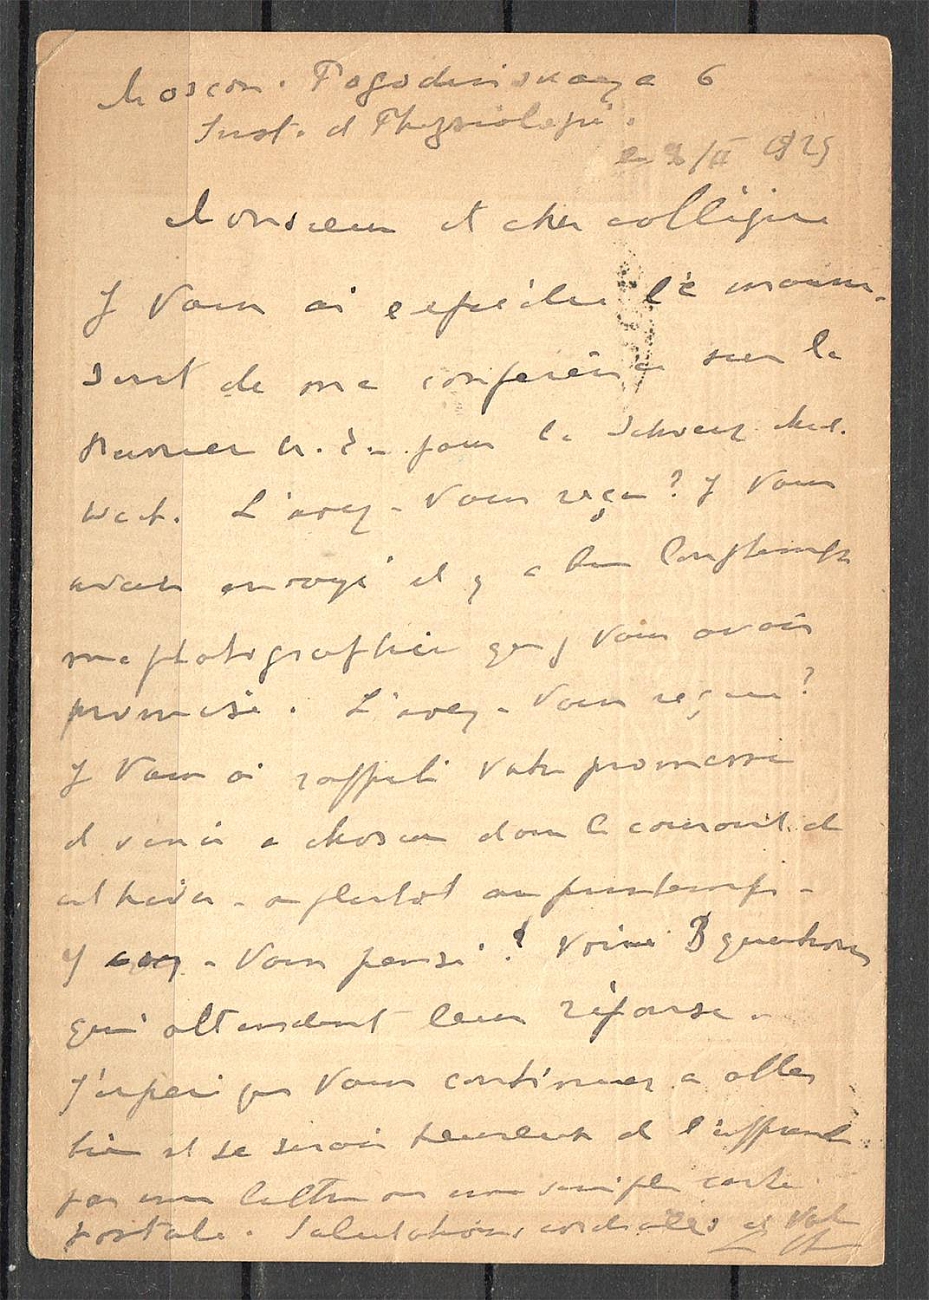 Moscou. Pogodinskaya 6
Inst. d Physiologie.
1929
Monsieur et cher collègue
J Vous ai expédié le manus-
crit de ma conférence sur le
pour la Schweiz. Med.
Woch. L'avez-Vous reçu? J Vous
avais envoyé il y a bien longtemps
ma photographie que j Vous avais
promise. L'avez-Vous reçue?
J Vous ai rappelé Votre promesse
d venir a Moscou dans le courant d
cet hiver - ou plutot au printemps -
Y avez-Vous pensé? Voici 3 questions
qui attendent leur réponse -
J'espère que Vous continuez a aller
bien et je serais heureux d l'apprendre
par une lettre ou une simple carte
postale. Salutations cordiales et